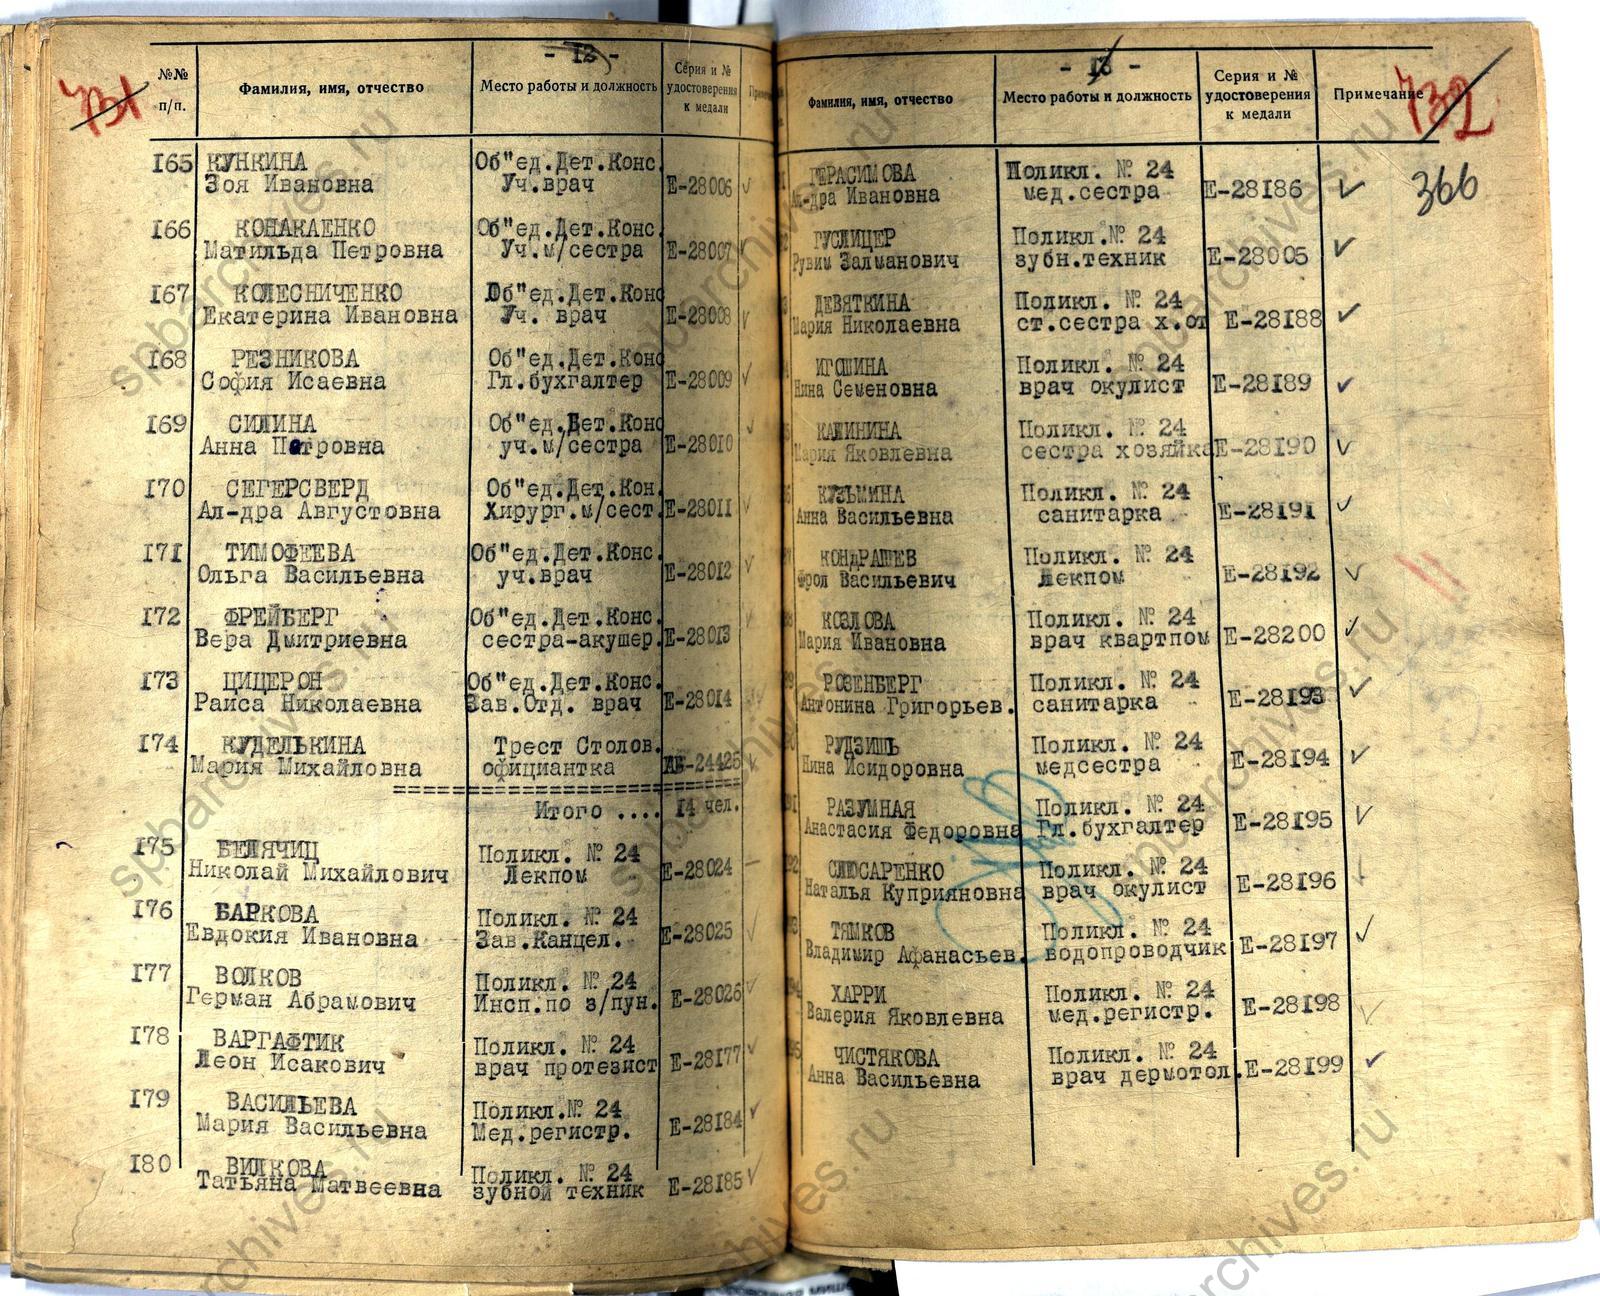 731
- 12 -
№№ п/п. Фамилия, имя, отчество Место работы и должность Серия и № удостоверения к медали
165 КУНКИНА Об"ед.Дет.Конс.
Зоя Ивановна Уч.врач Е-28006 ✓
166 КОНАКАЕНКО Об"ед.Дет.Конс.
Матильда Петровна Уч.м/сестра Е-28007 ✓
167 КОЛЕСНИЧЕНКО Об"ед.Дет.Конс
Екатерина Ивановна Уч. врач Е-28008 ✓
168 РЕЗНИКОВА Об"ед.Дет.Конс
София Исаевна Гл.бухгалтер Е-28009 ✓
169 СИЛИНА Об"ед.Дет.Конс
Анна Петровна уч.м/сестра Е-28010 ✓
170 СЕГЕРСВЕРД Об"ед.Дет.Кон.
Ал-дра Августовна Хирург.м/сест. Е-28011 ✓
171 ТИМОФЕЕВА Об"ед.Дет.Конс.
Ольга Васильевна уч.врач Е-28012 ✓
172 ФРЕЙБЕРГ Об"ед.Дет.Конс.
Вера Дмитриевна сестра-акушер. Е-28013 ✓
173 ЦИЦЕРОН Об"ед.Дет.Конс.
Раиса Николаевна Зав.Отд. врач Е-28014 ✓
174 КУДЕЛЬКИНА Трест Столов.
Мария Михайловна официантка -24425 ✓
Итого .... 14 чел.
175 БЕЛЯЧИЦ Поликл. № 24
Николай Михайлович Лекпом Е-28024 —
176 БАРКОВА Поликл. № 24
Евдокия Ивановна Зав.Канцел. Е-28025 ✓
177 ВОЛКОВ Поликл. № 24
Герман Абрамович Инсп.по з/пун. Е-28026 ✓
178 ВАРГАФТИК Поликл. № 24
Леон Исакович врач протезист Е-28177 ✓
179 ВАСИЛЬЕВА Поликл.№ 24
Мария Васильевна Мед.регистр. Е-28184 ✓
180 ВИЛКОВА Поликл. № 24
Татьяна Матвеевна зубной техник Е-28185 ✓
732
- 13 -
Фамилия, имя, отчество Место работы и должность Серия и № удостоверения к медали Примечание
366
ГЕРАСИМОВА Поликл. № 24
Ал-дра Ивановна мед.сестра Е-28186 ✓
ГУСЛИЦЕР Поликл.№ 24
Рувим Залманович зубн.техник Е-28005 ✓
ДЕВЯТКИНА Поликл. № 24
Мария Николаевна ст.сестра х.от Е-28188 ✓
ИГОШИНА Поликл. № 24
Нина Семеновна врач окулист Е-28189 ✓
КАЛИНИНА Поликл. № 24
Мария Яковлевна сестра хозяйка Е-28190 ✓
КУЗЬМИНА Поликл. № 24
Анна Васильевна санитарка Е-28191 ✓
КОНДРАШЕВ Поликл. № 24
Фрол Васильевич Лекпом Е-28192 ✓
КОЗЛОВА Поликл. № 24
Мария Ивановна врач квартпом Е-28200 ✓
РОЗЕНБЕРГ Поликл. № 24
Антонина Григорьев. санитарка Е-28193 ✓
РУДЗИШЬ Поликл. № 24
Нина Исидоровна медсестра Е-28194 ✓
РАЗУМНАЯ Поликл. № 24
Анастасия Федоровна Гл.бухгалтер Е-28195 ✓
СЛЮСАРЕНКО Поликл. № 24
Наталья Куприяновна врач окулист Е-28196 ✓
ТЯМКОВ Поликл. № 24
Владимир Афанасьев. водопроводчик Е-28197 ✓
ХАРРИ Поликл. № 24
Валерия Яковлевна мед.регистр. Е-28198 ✓
ЧИСТЯКОВА Поликл. № 24
Анна Васильевна врач дермотол. Е-28199 ✓
spbarchives.ru